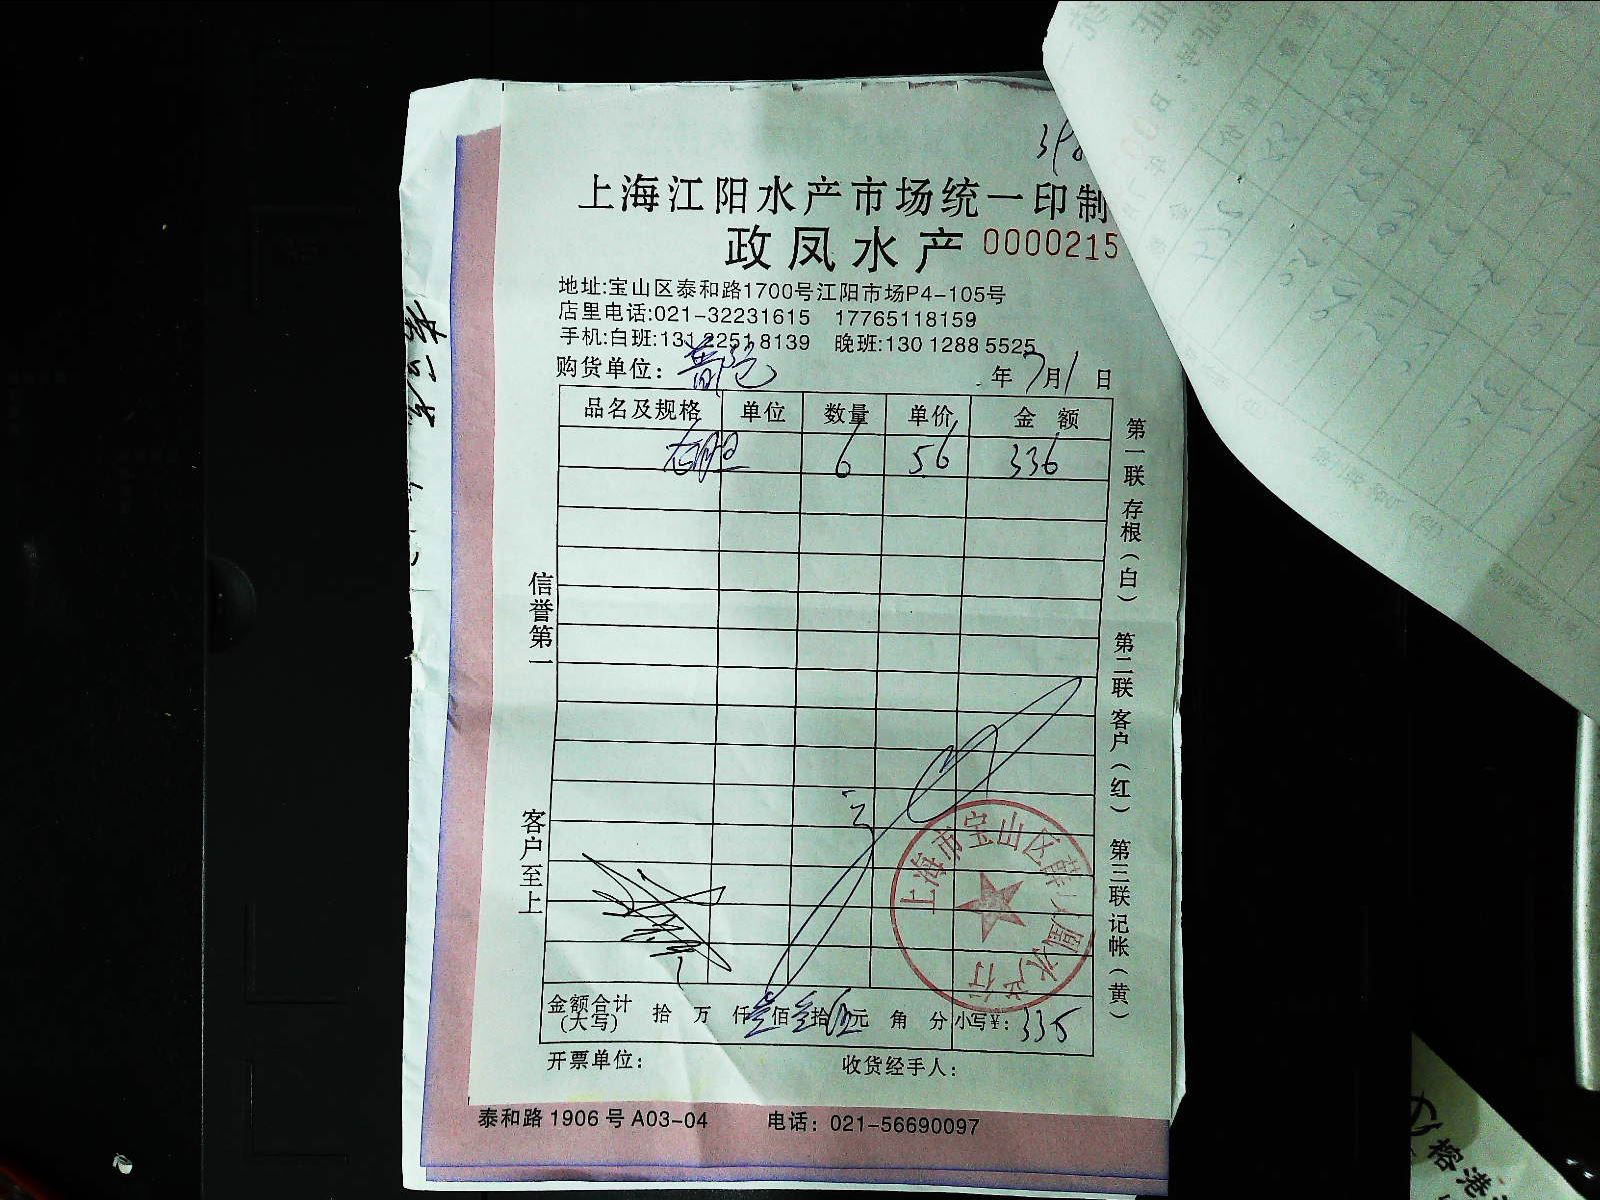 上海江阳水产市场统一印制
政凤水产 0000215
地址:宝山区泰和路1700号江阳市场P4-105号
店里电话:021-32231615 17765118159
手机:白班:131 2251 8139 晚班:130 1288 5525
购货单位: 年 7月1日
品名及规格 单位 数量 单价 金额
6 56 336
信誉第一
客户至上
第一联 存根(白) 第二联 客户(红) 第三联 记帐(黄)
上海市宝山区 凰水产行
金额合计(大写) 拾 万 仟 叁佰叁拾伍元 角 分 小写¥: 335
开票单位: 收货经手人:
泰和路1906号A03-04 电话: 021-56690097
榕港